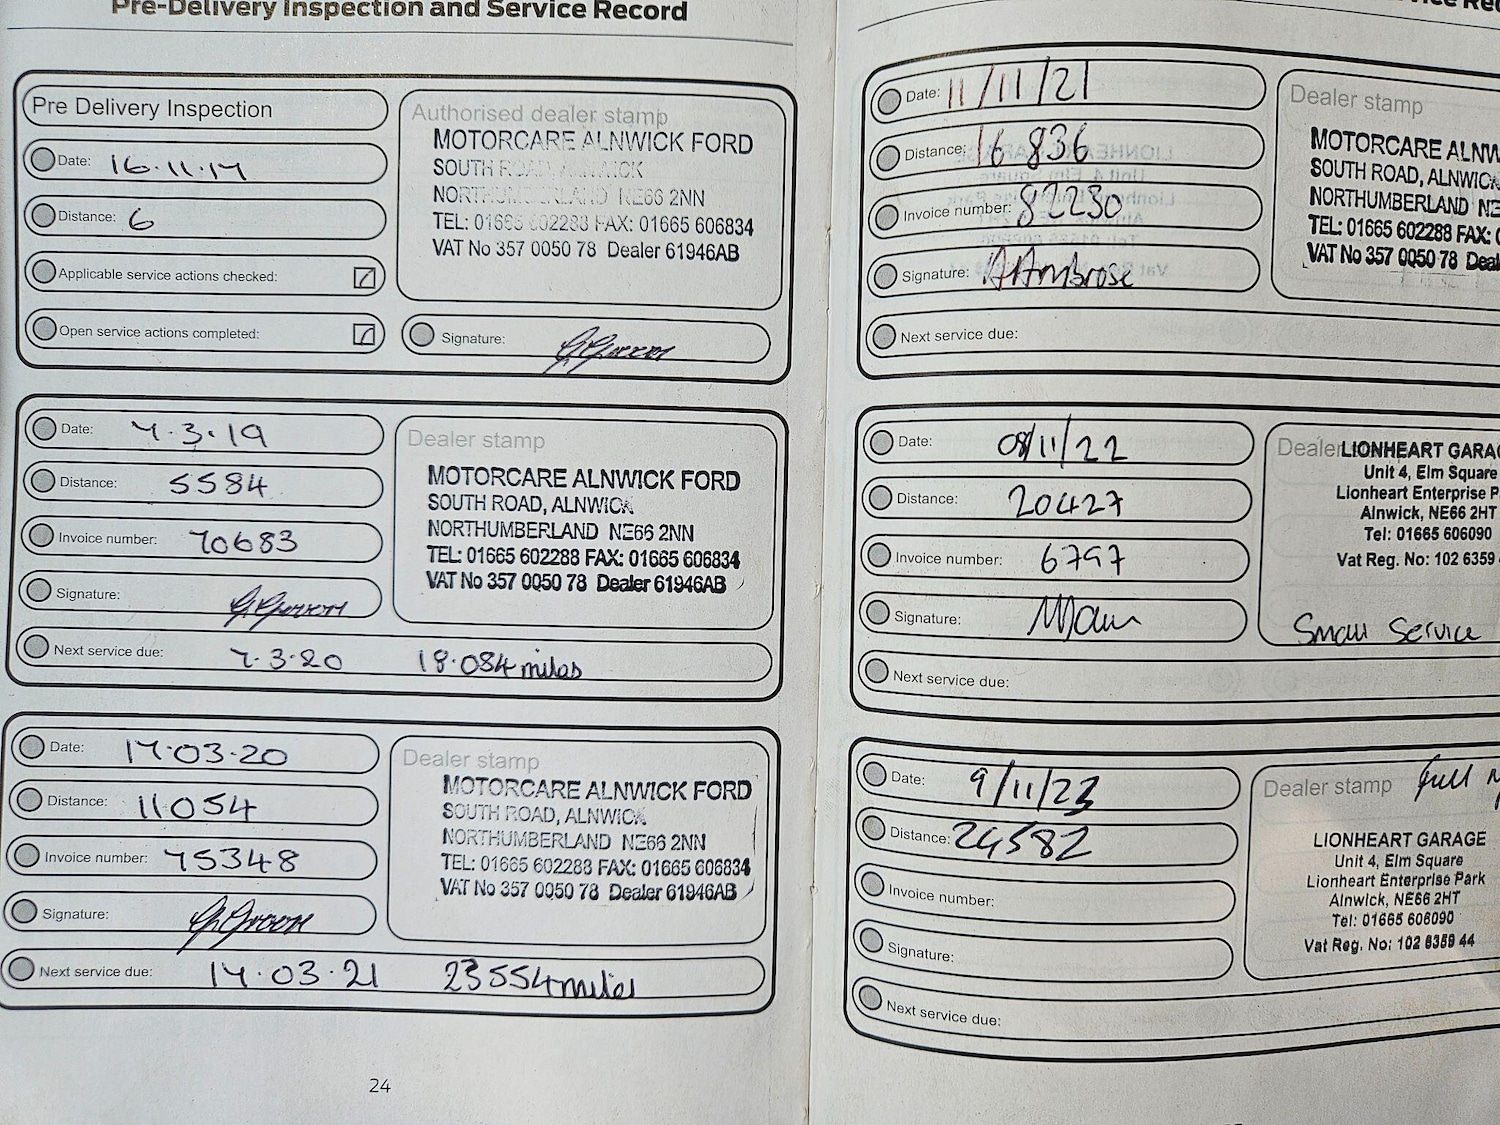 Pre-Delivery Inspection and Service Record
Pre Delivery Inspection
Date: 16.11.17
Distance: 6
Applicable service actions checked:
Open service actions completed:
Authorised dealer stamp
MOTORCARE ALNWICK FORD
SOUTH ROAD, ALNWICK
NORTHUMBERLAND NE66 2NN
TEL: 01665 602288 FAX: 01665 606834
VAT No 357 0050 78 Dealer 61946AB
Signature: G Green
Date: 7.3.19
Distance: 5584
Invoice number: 70683
Signature: G Green
Next service due: 7.3.20 18.084 miles
Dealer stamp
MOTORCARE ALNWICK FORD
SOUTH ROAD, ALNWICK
NORTHUMBERLAND NE66 2NN
TEL: 01665 602288 FAX: 01665 606834
VAT No 357 0050 78 Dealer 61946AB
Date: 17.03.20
Distance: 11054
Invoice number: 75348
Signature: G Green
Next service due: 17.03.21 23554 miles
Dealer stamp
MOTORCARE ALNWICK FORD
SOUTH ROAD, ALNWICK
NORTHUMBERLAND NE66 2NN
TEL: 01665 602288 FAX: 01665 606834
VAT No 357 0050 78 Dealer 61946AB
24
Date: 11/11/21
Distance: 16836
Invoice number: 82230
Signature: A Ambrose
Next service due:
Dealer stamp
MOTORCARE ALNW
SOUTH ROAD, ALNWICK
NORTHUMBERLAND NE
TEL: 01665 602288 FAX:
VAT No 357 0050 78 Deal
Date: 08/11/22
Distance: 20427
Invoice number: 6797
Signature:
Next service due:
Dealer
LIONHEART GARAG
Unit 4, Elm Square
Lionheart Enterprise P
Alnwick, NE66 2HT
Tel: 01665 606090
Vat Reg. No: 102 6359
Small Service
Date: 9/11/23
Distance: 24582
Invoice number:
Signature:
Next service due:
Dealer stamp full
LIONHEART GARAGE
Unit 4, Elm Square
Lionheart Enterprise Park
Alnwick, NE66 2HT
Tel: 01665 606090
Vat Reg. No: 102 6359 44